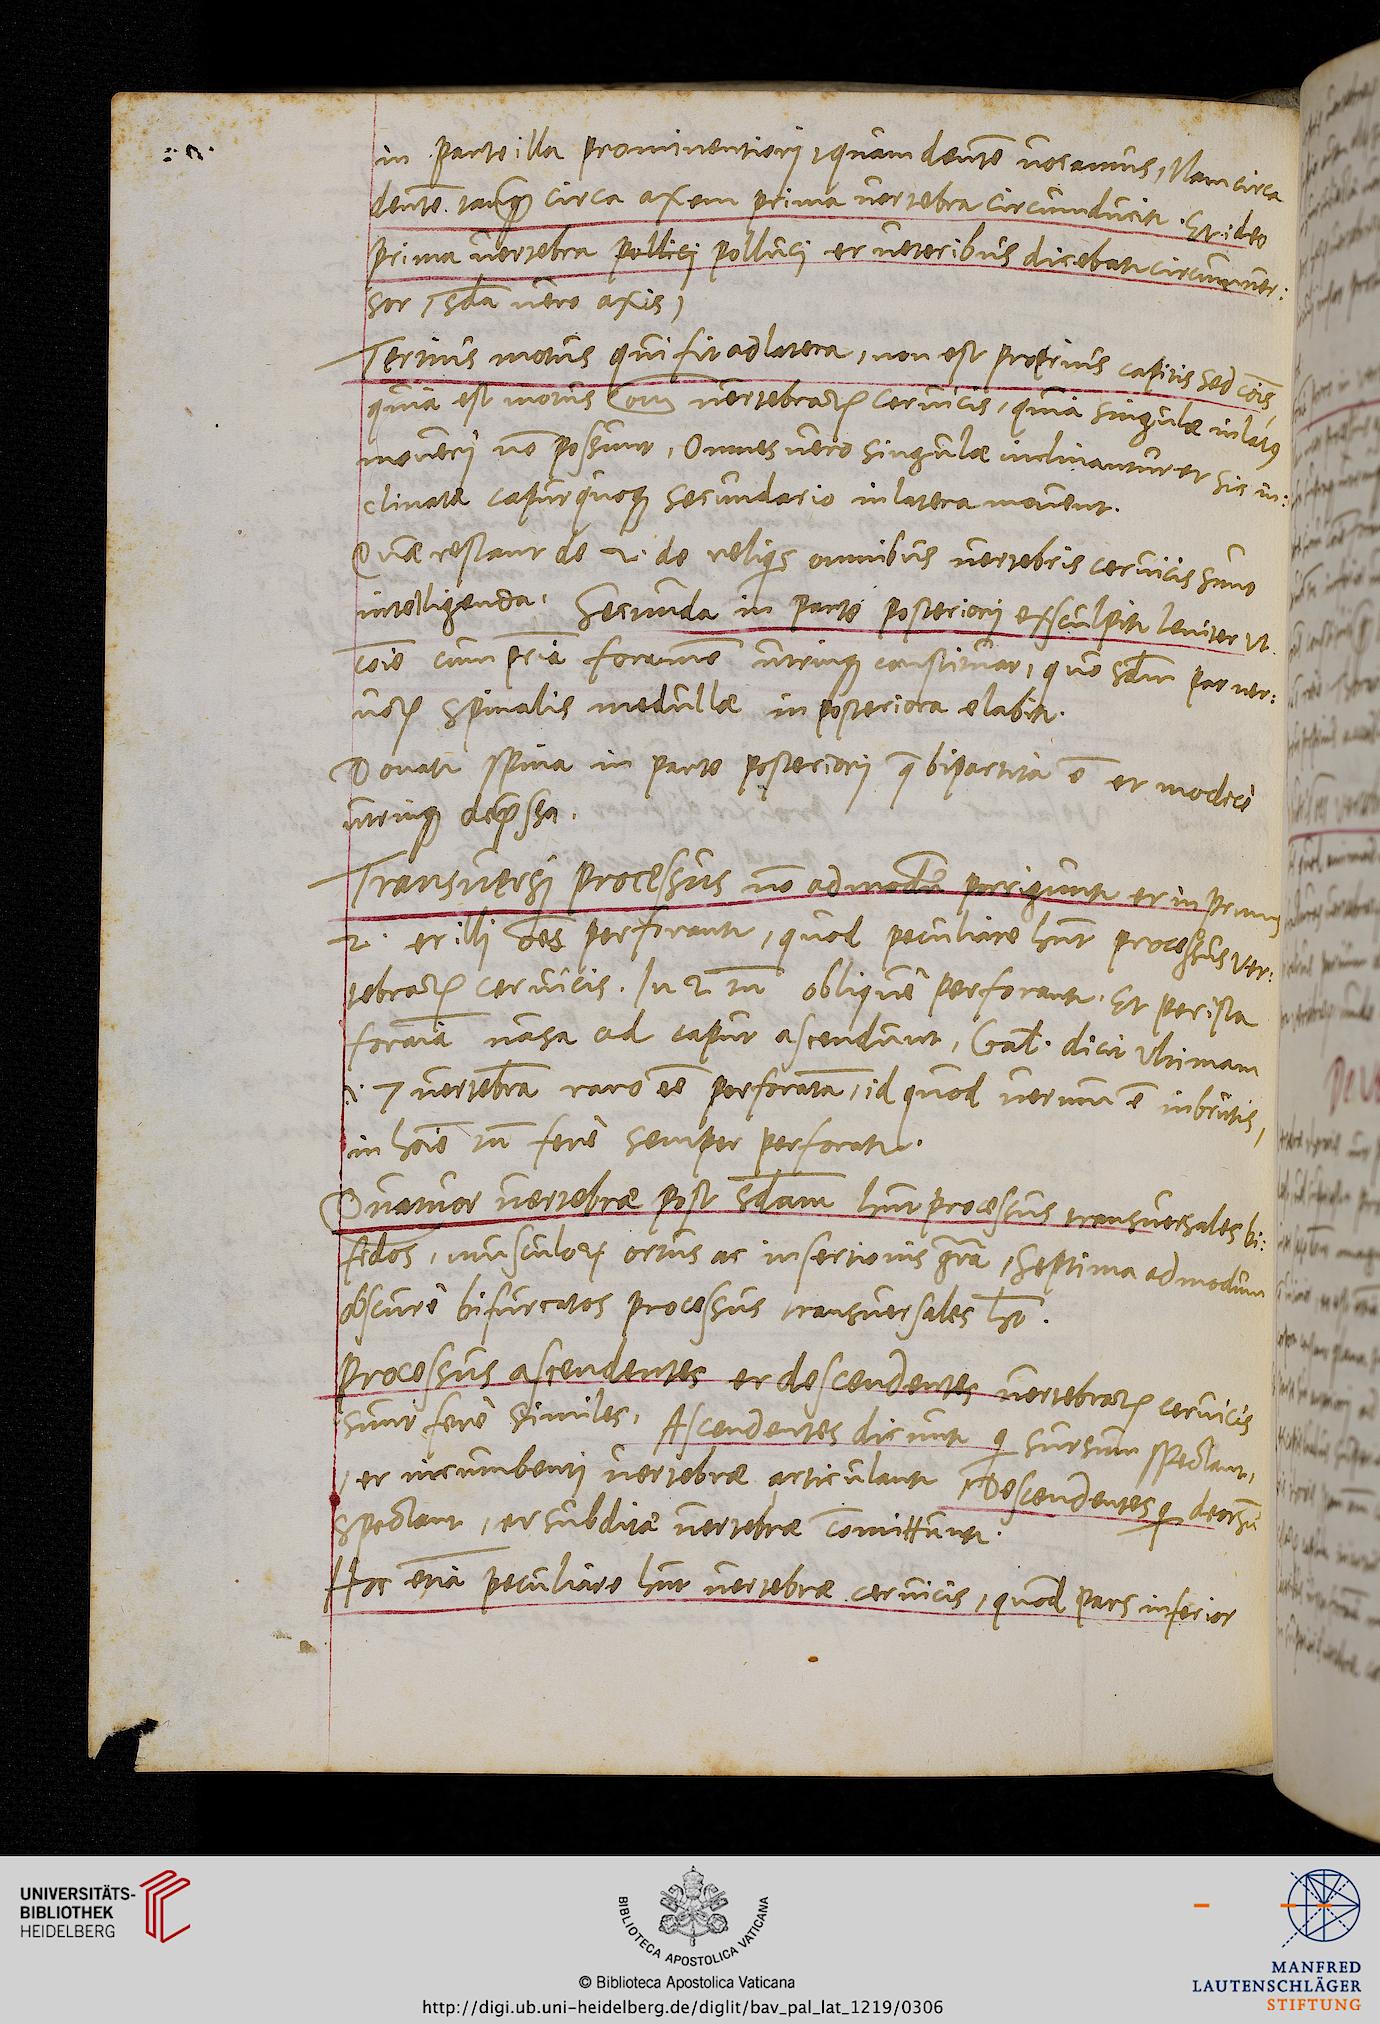 in parte illa prominentiori, quam dentē uocamus, Nam circa
dentē. tanq̃ circa axem prima uertebra circumducit᷑. Et ideo
prima uertebra pollici polluci et ueteribus dicebat᷑ circumuer:
sor, sd̄a uero axis,
Tertius motus qui fit ad latera, non est proprius capitis sed cōis,
quia est motus oīm uertebraꝝ ceruicis, quia singulæ in latꝰ
moueri nō possunt, Omnes uero singulæ inclinantur et sic in:
clinatæ caput quoqꝫ secundario in latera mouent.
Quæ restant de 2. de reliqs omnibus uertebris ceruicis sunt
intelligenda. Secunda in parte posteriori exsculpit᷑ leniter vt
cōie cum p̄ria foramē utrinqꝫ constituat, quo sd̄m par ner:
uoꝝ spinalis medullæ in posteriora elabit᷑.
Donat᷑ spina in parte posteriori q̄ bipartita ē et modicè
utrinqꝫ dep̄ssa.
Transuersi processus nō admodū porrigunt᷑ et in primis
2. et illi oēs perforant᷑, quod peculiare hn̄t processus ver:
tebraꝝ ceruicis. In 2. tn̄ obliquè perforant᷑. Et per ista
foraīa uasa ad caput ascendunt, Gal. dicit vltimam
i. 7 uertebrā raro eē perforatam, id quod uerum ē in brutis,
in hōie tn̄ ferè semper perforat᷑.
Quatuor uertebræ post sd̄am hn̄t processus transuersales bi:
fidos, musculoꝝ ortus ac insertionis gr̄a, Septima admodum
obscurè bifurcatos processus transuersales hꝫ.
Processus ascendentes et descendentes uertebraꝝ ceruicis
sunt ferè similes, Ascendentes dicunt᷑ q̄ sursum spectant,
et incumbenti uertebræ articulant᷑ Descendentes q̄ deorsū
spectant, et subditæ uertebræ com̄ittunt᷑.
Hoc etiā peculiare hn̄t uertebræ ceruicis, quod pars inferior
UNIVERSITÄTS-
BIBLIOTHEK
HEIDELBERG
BIBLIOTECA APOSTOLICA VATICANA
© Biblioteca Apostolica Vaticana
http://digi.ub.uni-heidelberg.de/diglit/bav_pal_lat_1219/0306
MANFRED
LAUTENSCHLÄGER
STIFTUNG